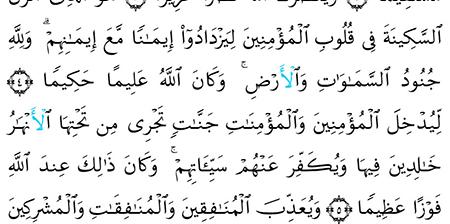 السَّكِينَةَ فِى قُلُوبِ الْمُؤْمِنِينَ لِيَزْدَادُوٓا۟ إِيمَٰنًا مَّعَ إِيمَٰنِهِمْ ۗ وَلِلَّهِ
جُنُودُ السَّمَٰوَٰتِ وَالْأَرْضِ ۚ وَكَانَ اللَّهُ عَلِيمًا حَكِيمًا ﴿٤﴾
لِّيُدْخِلَ الْمُؤْمِنِينَ وَالْمُؤْمِنَٰتِ جَنَّٰتٍ تَجْرِى مِن تَحْتِهَا الْأَنْهَٰرُ
خَٰلِدِينَ فِيهَا وَيُكَفِّرَ عَنْهُمْ سَيِّـَٔاتِهِمْ ۚ وَكَانَ ذَٰلِكَ عِندَ اللَّهِ
فَوْزًا عَظِيمًا ﴿٥﴾ وَيُعَذِّبَ الْمُنَٰفِقِينَ وَالْمُنَٰفِقَٰتِ وَالْمُشْرِكِينَ